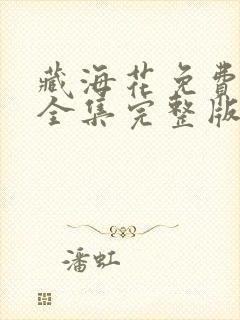 藏海花免费
全集完整版
潘虹